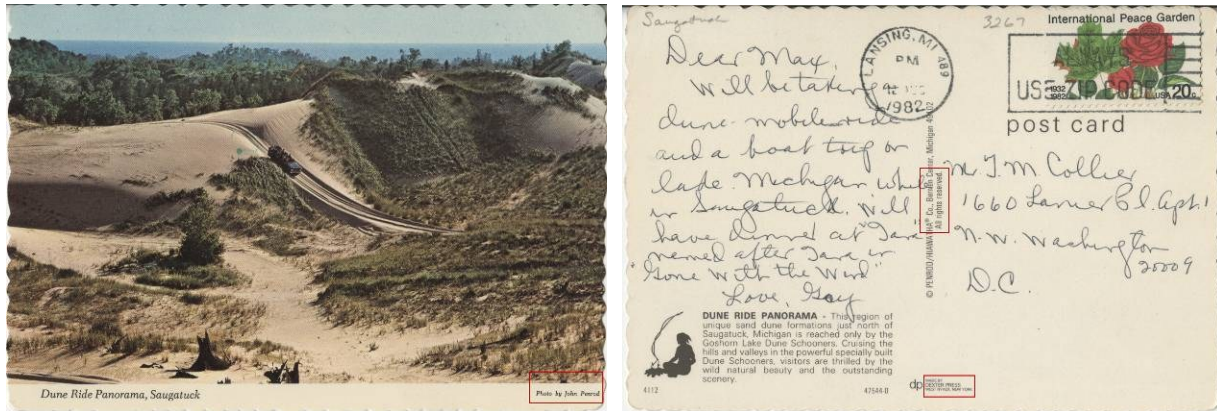 Dune Ride Panorama, Saugatuck
Photo by John Penrod
Saugatuck
3267
International Peace Garden
LANSING, MI 489
PM
1982
USE ZIP CODE
1932
1982
USA 20c
post card
Dear Max,
Will be taking a
dune-mobile ride
and a boat trip on
lake Michigan while
in Saugatuck. Will
have dinner at "Tara"
named after Tara in
"Gone With the Wind"
Love, Gay
© PENROD/HIAWATHA® Co., Berrien Center, Michigan 49102
All rights reserved.
Mr T. M Collier
1660 Lanier Pl. Apt. 1
N.W. Washington
20009
D.C.
DUNE RIDE PANORAMA - This region of
unique sand dune formations just north of
Saugatuck, Michigan is reached only by the
Goshorn Lake Dune Schooners. Cruising the
hills and valleys in the powerful specially built
Dune Schooners, visitors are thrilled by the
wild natural beauty and the outstanding
scenery.
4112
47544-D
dp
DEXTER PRESS
WEST NYACK, NEW YORK